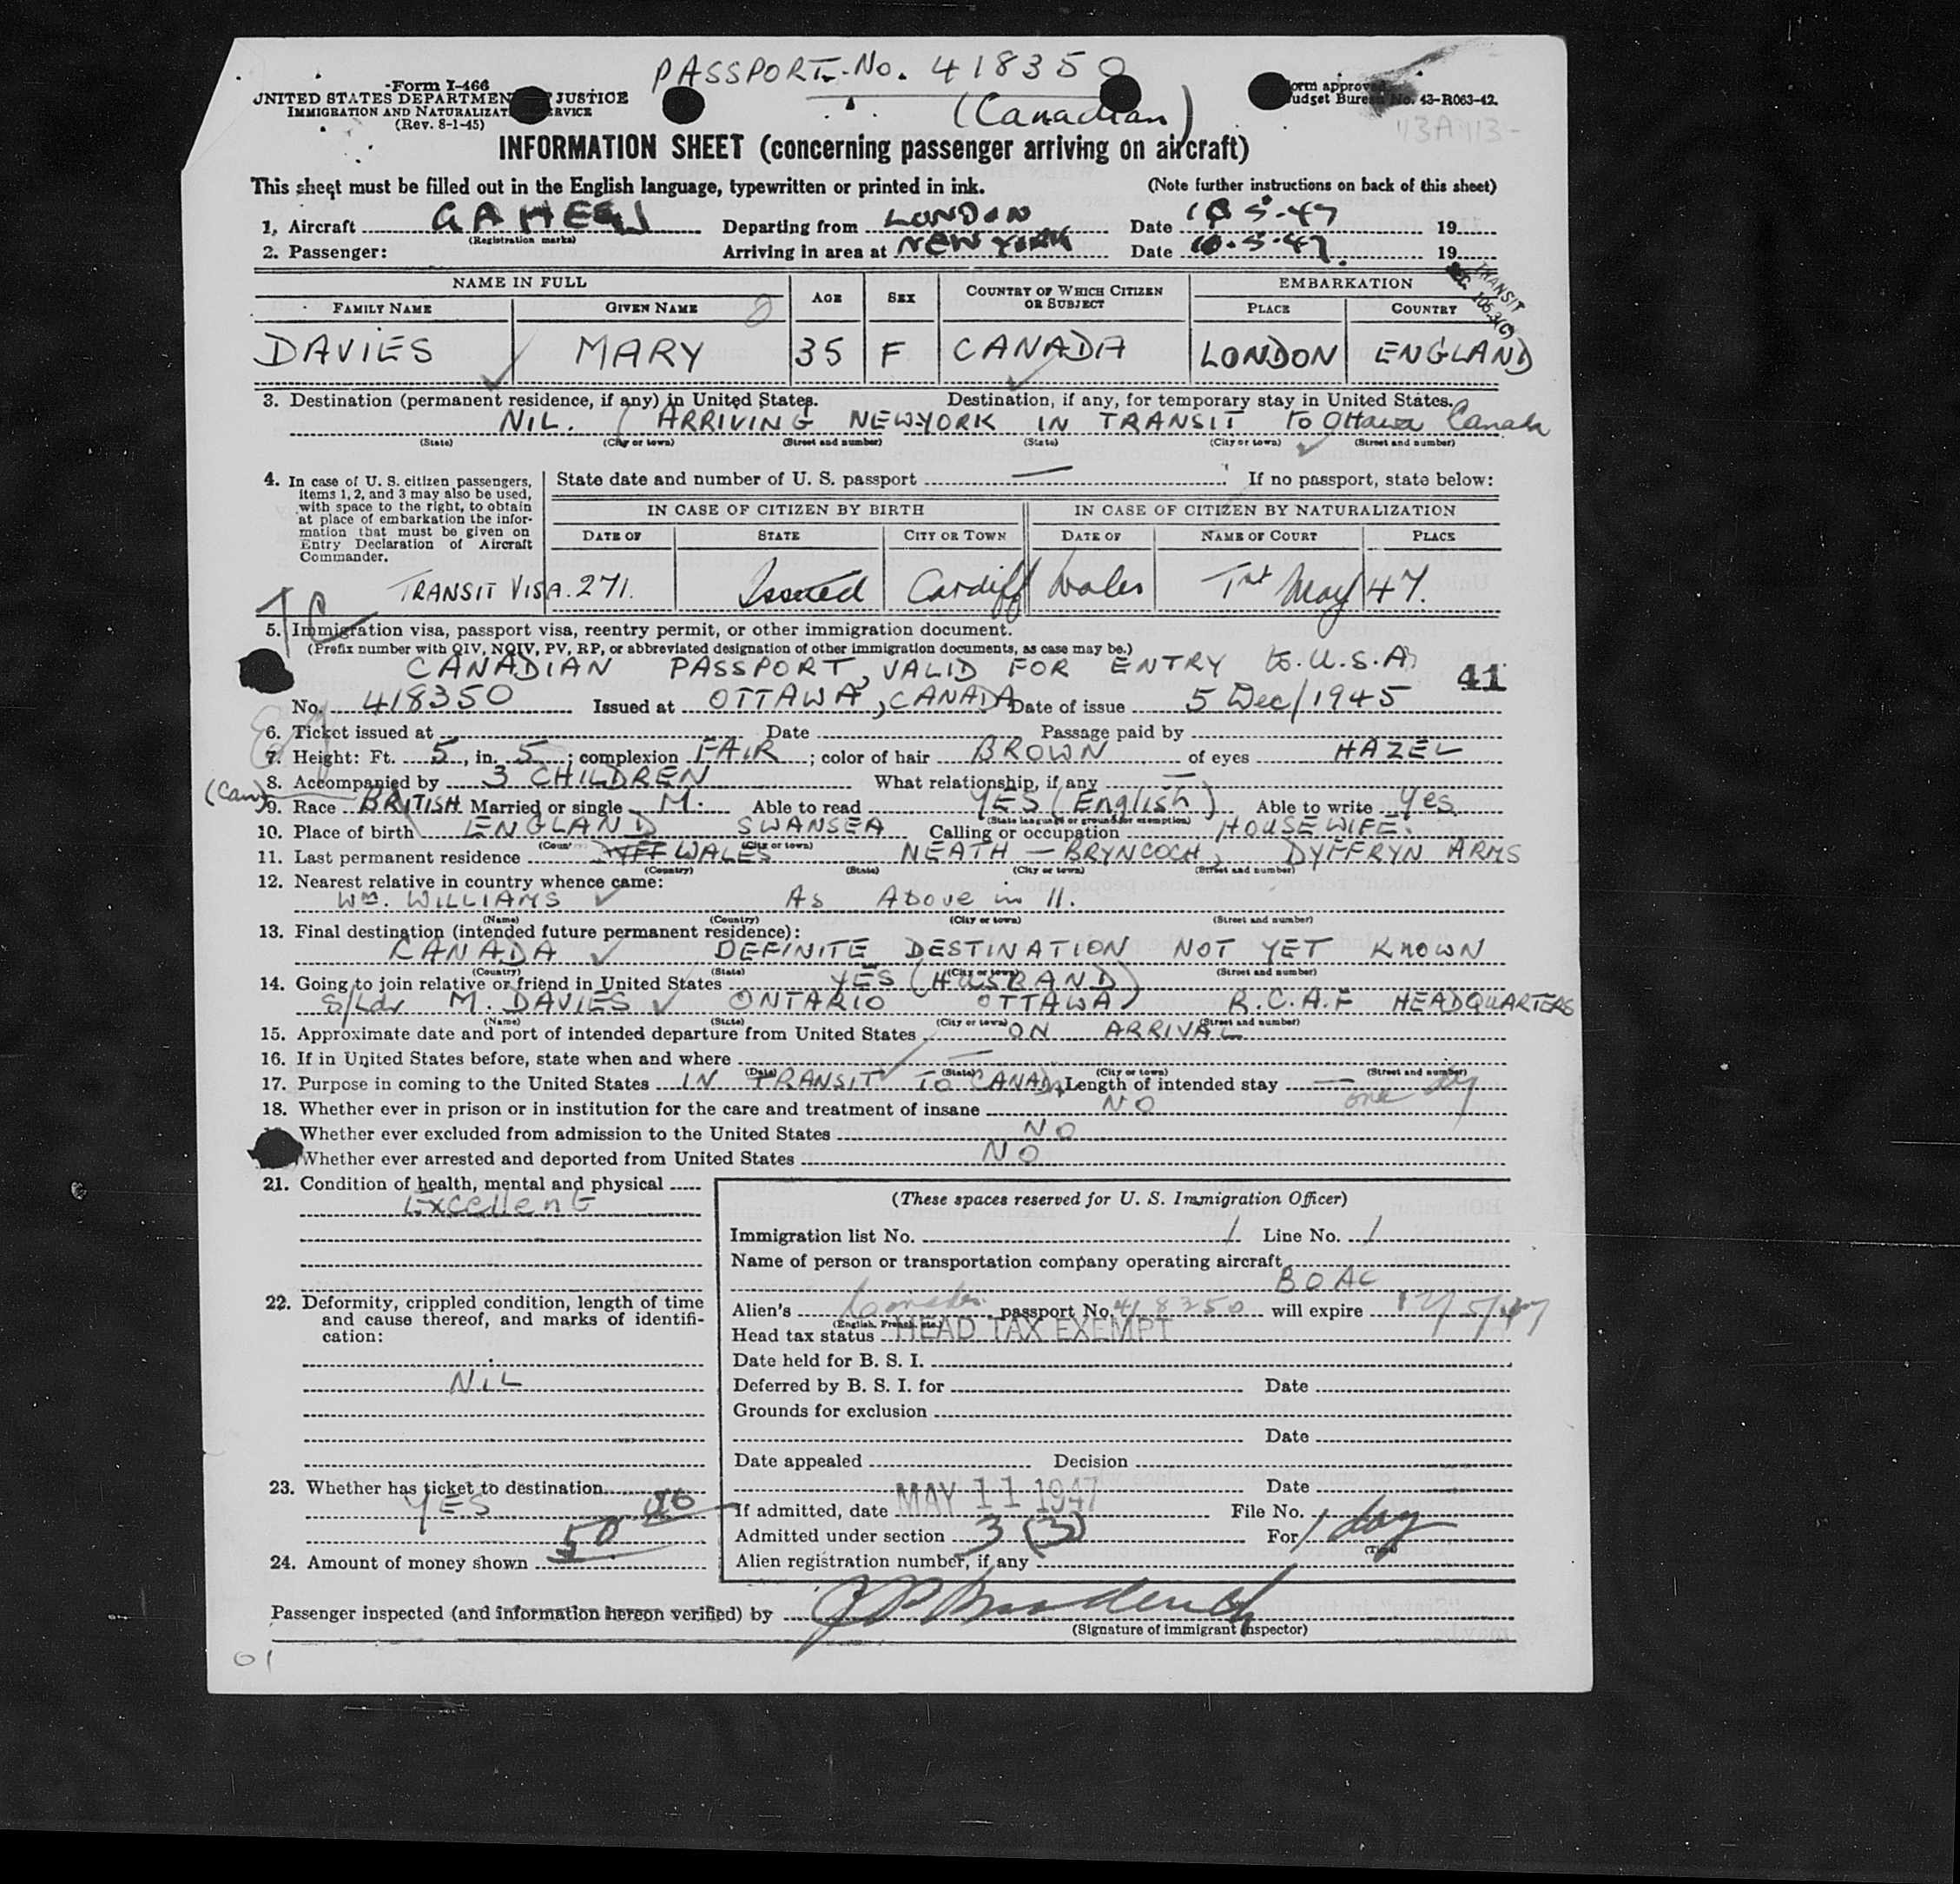 PASSPORT. No. 418350
(Canadian)
Form I-466
UNITED STATES DEPARTMENT JUSTICE
IMMIGRATION AND NATURALIZAT ERVICE
(Rev. 8-1-45)
orm approved
udget Bureau No. 43-R063-42.
INFORMATION SHEET (concerning passenger arriving on aircraft)
This sheet must be filled out in the English language, typewritten or printed in ink. (Note further instructions on back of this sheet)
1. Aircraft Departing from LONDON Date 19
(Registration marks)
2. Passenger: Arriving in area at NEW YORK Date 10.5.47. 19
TRANSIT
NAME IN FULL AGE SEX COUNTRY OF WHICH CITIZEN OR SUBJECT EMBARKATION
FAMILY NAME GIVEN NAME PLACE COUNTRY
DAVIES MARY 35 F CANADA LONDON ENGLAND
3. Destination (permanent residence, if any) in United States. Destination, if any, for temporary stay in United States.
NIL. ARRIVING NEW YORK IN TRANSIT TO Ottawa Canada
(State) (City or town) (Street and number) (State) (City or town) (Street and number)
4. In case of U. S. citizen passengers,
items 1, 2, and 3 may also be used,
with space to the right, to obtain
at place of embarkation the infor-
mation that must be given on
Entry Declaration of Aircraft
Commander.
State date and number of U. S. passport — If no passport, state below:
IN CASE OF CITIZEN BY BIRTH IN CASE OF CITIZEN BY NATURALIZATION
DATE OF STATE CITY OR TOWN DATE OF NAME OF COURT PLACE
TRANSIT VISA. 271. Issued Cardiff Wales 1st May 47.
5. Immigration visa, passport visa, reentry permit, or other immigration document.
(Prefix number with QIV, NQIV, PV, RP, or abbreviated designation of other immigration documents, as case may be.)
CANADIAN PASSPORT, VALID FOR ENTRY to U.S.A. 41
No. 418350 Issued at OTTAWA, CANADA Date of issue 5 Dec/1945
6. Ticket issued at Date Passage paid by
7. Height: Ft. 5, in. 5; complexion FAIR; color of hair BROWN of eyes HAZEL
8. Accompanied by 3 CHILDREN What relationship, if any —
(Can)
9. Race BRITISH Married or single M. Able to read YES (English) Able to write Yes
(State language or ground for exemption)
10. Place of birth ENGLAND SWANSEA Calling or occupation HOUSEWIFE.
(City or town)
11. Last permanent residence WALES NEATH — BRYNCOCH, DYFFRYN ARMS
(Country) (State) (City or town) (Street and number)
12. Nearest relative in country whence came:
Wm. WILLIAMS As Above in 11.
(Name) (Country) (City or town) (Street and number)
13. Final destination (intended future permanent residence):
CANADA DEFINITE DESTINATION NOT YET KNOWN
(Country) (State) (City or town) (Street and number)
14. Going to join relative or friend in United States YES (HUSBAND)
S/Ldr M. DAVIES ONTARIO OTTAWA R.C.A.F HEADQUARTERS
(Name) (State) (City or town) (Street and number)
15. Approximate date and port of intended departure from United States ON ARRIVAL
16. If in United States before, state when and where —
(Date) (State) (City or town) (Street and number)
17. Purpose in coming to the United States IN TRANSIT TO CANADA Length of intended stay — one day
18. Whether ever in prison or in institution for the care and treatment of insane NO
Whether ever excluded from admission to the United States NO
Whether ever arrested and deported from United States NO
21. Condition of health, mental and physical
Excellent
22. Deformity, crippled condition, length of time
and cause thereof, and marks of identifi-
cation:
NIL
23. Whether has ticket to destination
YES
24. Amount of money shown 50 00
(These spaces reserved for U. S. Immigration Officer)
Immigration list No. 1 Line No. 1
Name of person or transportation company operating aircraft
BOAC
Alien's passport No. 418350 will expire
(English, French, etc.)
Head tax status HEAD TAX EXEMPT
Date held for B. S. I.
Deferred by B. S. I. for Date
Grounds for exclusion
Date
Date appealed Decision
Date
If admitted, date MAY 11 1947 File No.
Admitted under section 3 (3) For 1 day
(Time)
Alien registration number, if any
Passenger inspected (and information hereon verified) by
(Signature of immigrant inspector)
01